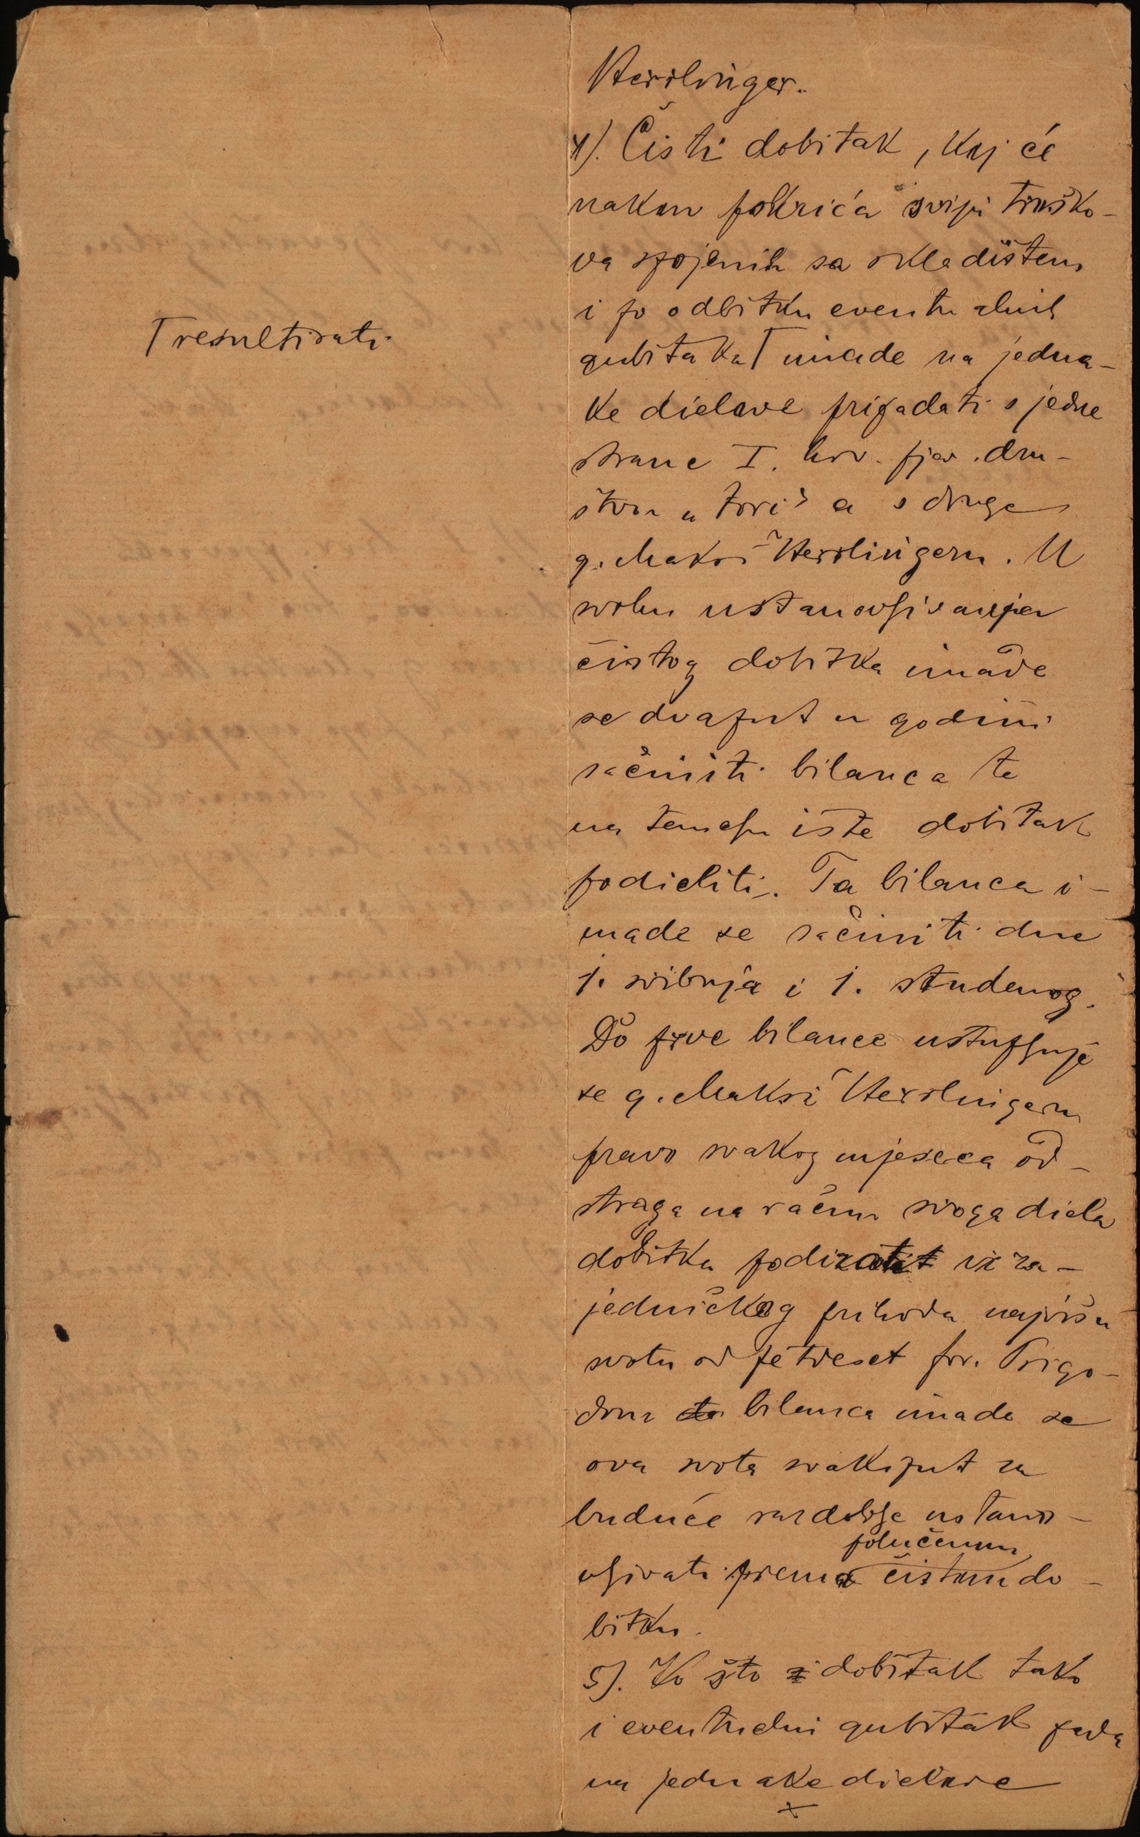 Herrlinger.
4). Čisti dobitak, koj će
nakon pokrića sviju troško-
va spojenih sa skladištem
i po odbitku eventualnih
gubitaka Γ imade na jedna-
Γ resultirati
ke dielove pripadati s jedne
strane I. hrv. pjev. dru-
štvu „Zori" a s druge
g. Maksi Herrlingeru. U
svrhu ustanovljivanja
čistog dobitka imade
se dvaput u godini
sačiniti bilanca te
na temelju iste dobitak
podieliti. Ta bilanca i-
made se sačiniti dne
1. svibnja i 1. studenog.
Do prve bilance ustupljuje
se g. Maksi Herrlingeru
pravo svakog mjeseca od-
straga na račun svoga diela
dobitka podizati iz za-
jedničkog prihoda najvišu
svotu od petdeset for. Prigo-
dom bilanca imade se
ova svota svakiput za
buduće razdoblje ustano-
vljivati prema polučenom čistom do-
bitku.
5). Ko što i dobitak tako
i eventualni gubitak pada
na jednake dielove
+